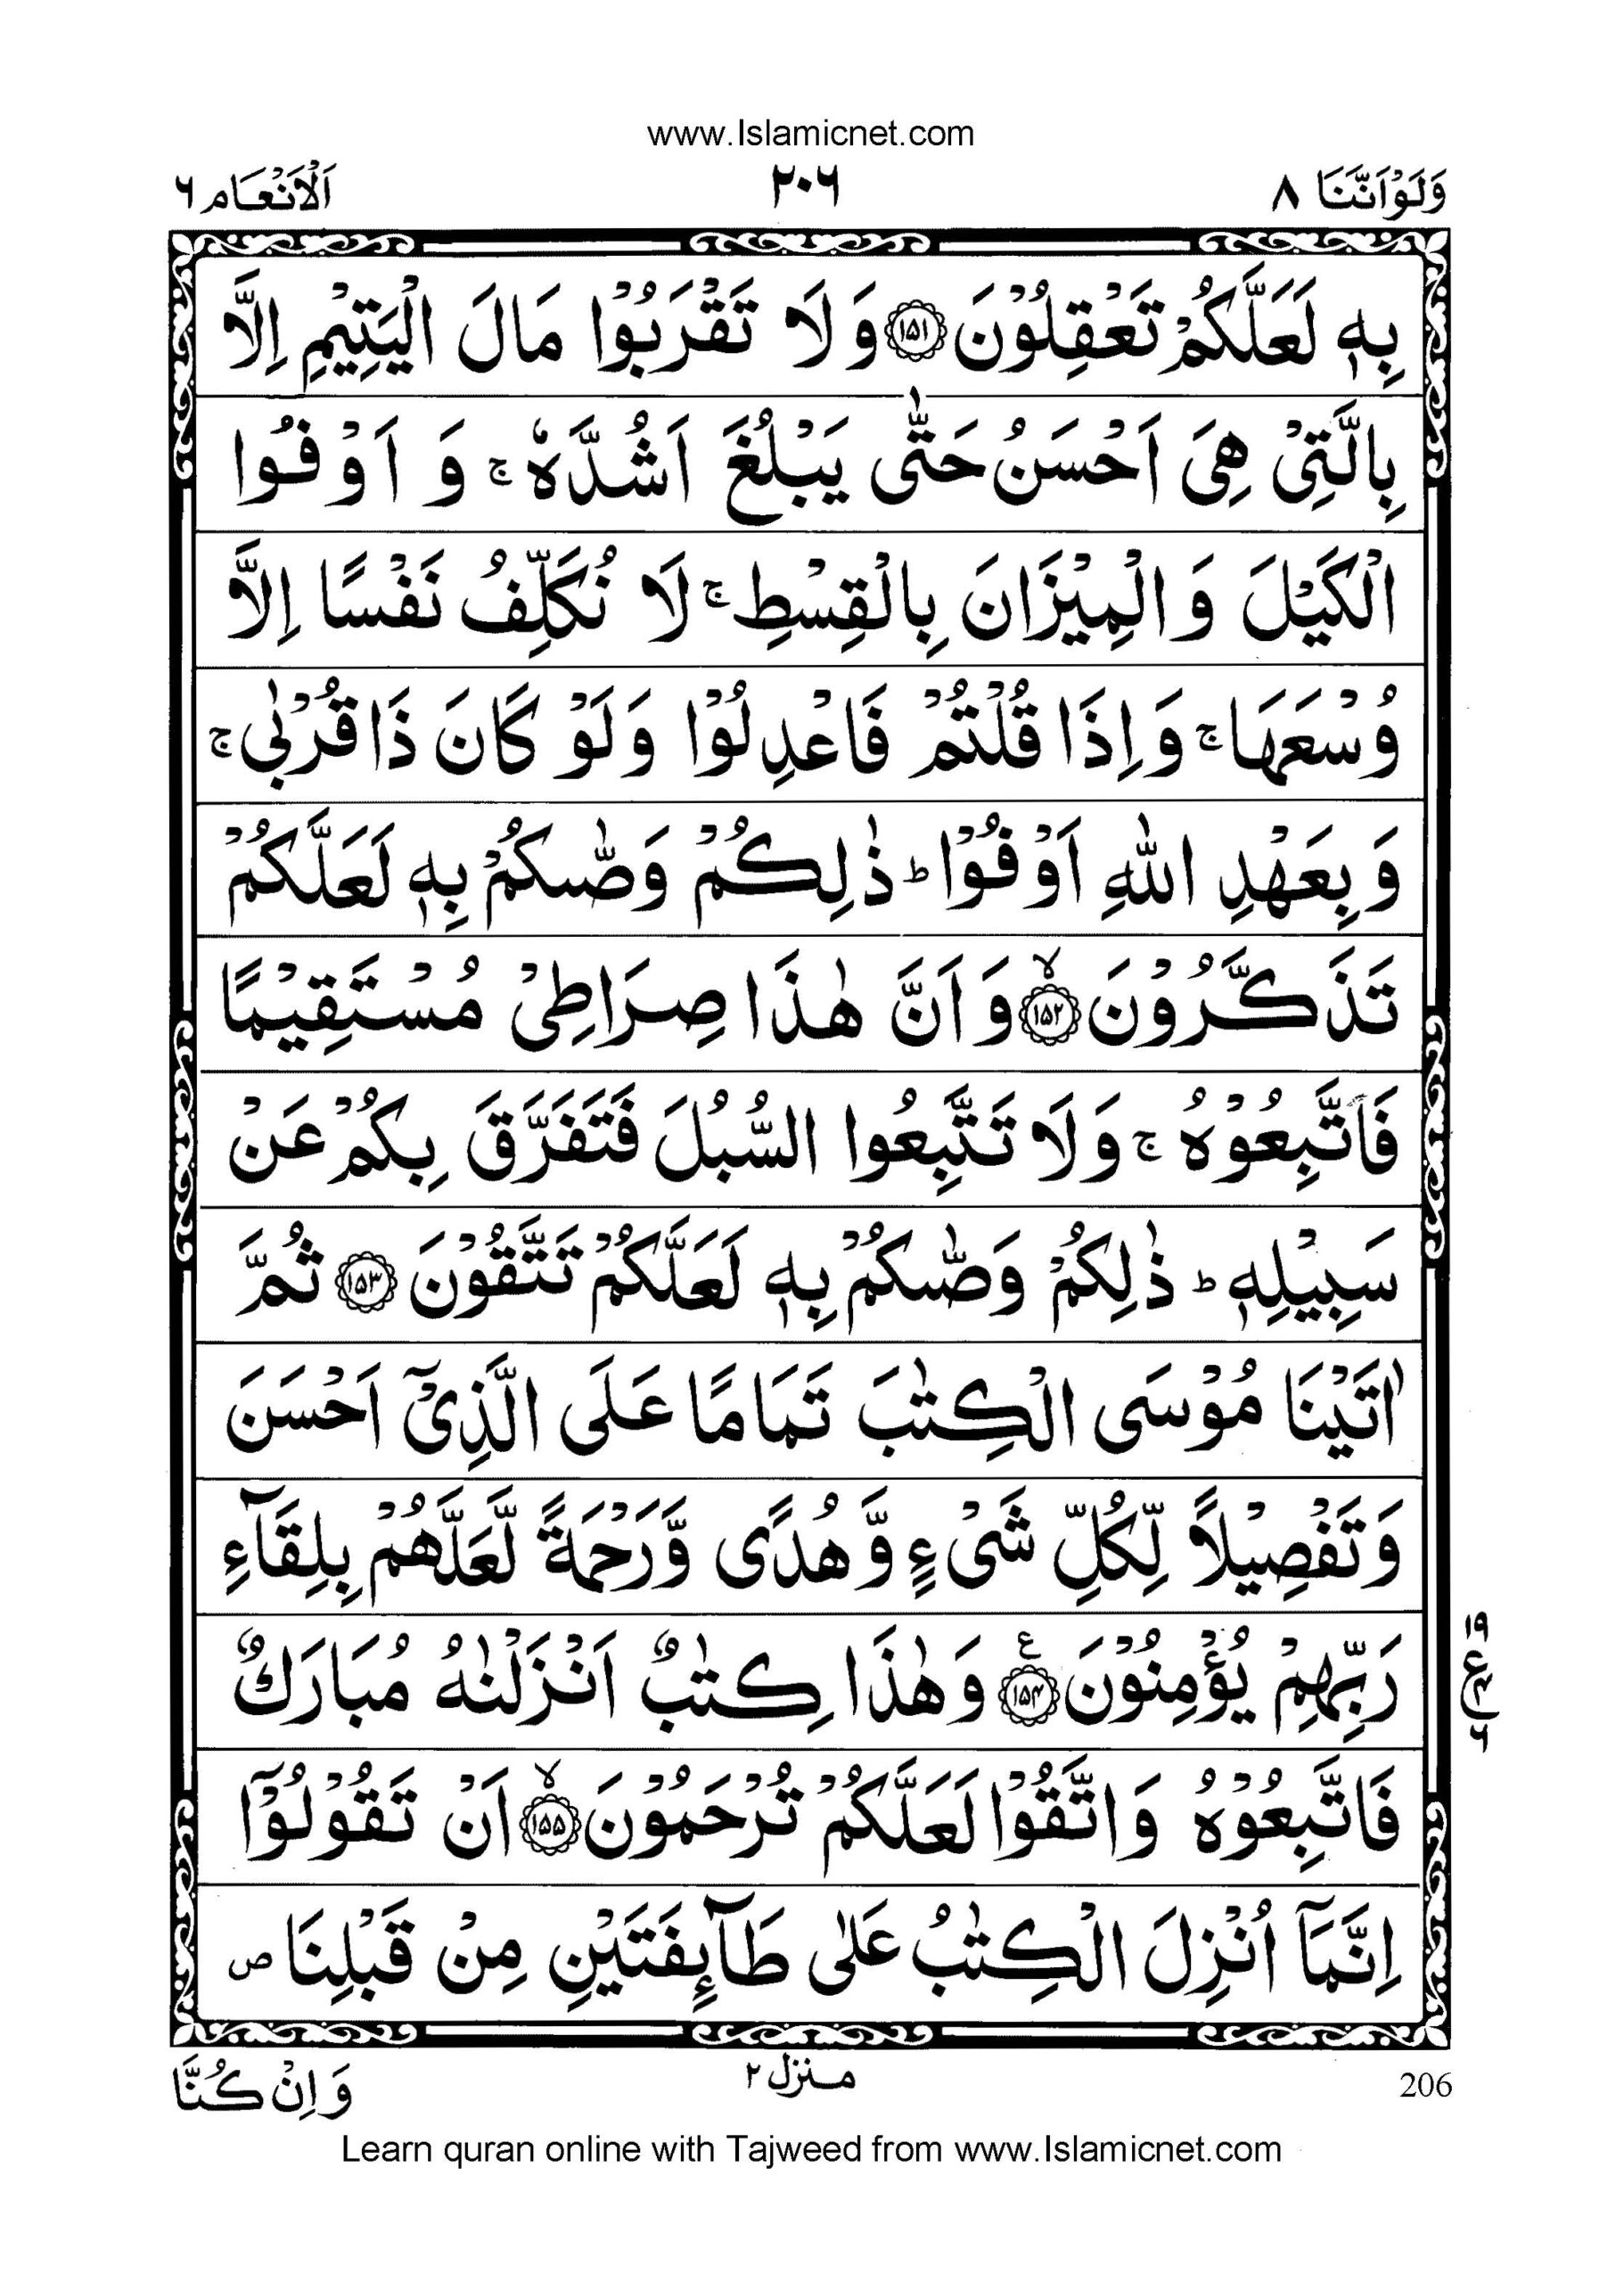 www.Islamicnet.com
وَلَوْاَنَّنَا ٨ ٢٠٦ اَلْاَنْعَام ٦
بِهٖ لَعَلَّكُمْ تَعْقِلُوْنَ ﴿۱۵۱﴾ وَ لَا تَقْرَبُوْا مَالَ الْيَتِيْمِ اِلَّا
بِالَّتِىْ هِىَ اَحْسَنُ حَتّٰى يَبْلُغَ اَشُدَّهٗ ۚ وَ اَوْفُوا
الْكَيْلَ وَ الْمِيْزَانَ بِالْقِسْطِ ۚ لَا نُكَلِّفُ نَفْسًا اِلَّا
وُسْعَهَا ۚ وَاِذَا قُلْتُمْ فَاعْدِلُوْا وَلَوْ كَانَ ذَا قُرْبٰى ۚ
وَ بِعَهْدِ اللّٰهِ اَوْفُوْا ؕ ذٰلِكُمْ وَصّٰىكُمْ بِهٖ لَعَلَّكُمْ
تَذَكَّرُوْنَ ﴿۱۵۲﴾ ۙ وَ اَنَّ هٰذَا صِرَاطِىْ مُسْتَقِيْمًا
فَاتَّبِعُوْهُ ۚ وَلَا تَتَّبِعُوا السُّبُلَ فَتَفَرَّقَ بِكُمْ عَنْ
سَبِيْلِهٖ ؕ ذٰلِكُمْ وَصّٰىكُمْ بِهٖ لَعَلَّكُمْ تَتَّقُوْنَ ﴿۱۵۳﴾ ثُمَّ
اٰتَيْنَا مُوْسَى الْكِتٰبَ تَمَامًا عَلَى الَّذِىْۤ اَحْسَنَ
وَتَفْصِيْلًا لِّكُلِّ شَىْءٍ وَّ هُدًى وَّرَحْمَةً لَّعَلَّهُمْ بِلِقَآءِ
رَبِّهِمْ يُؤْمِنُوْنَ ﴿۱۵۴﴾ ع وَهٰذَا كِتٰبٌ اَنْزَلْنٰهُ مُبَارَكٌ
فَاتَّبِعُوْهُ وَاتَّقُوْا لَعَلَّكُمْ تُرْحَمُوْنَ ﴿۱۵۵﴾ ۙ اَنْ تَقُوْلُوْۤا
اِنَّمَاۤ اُنْزِلَ الْكِتٰبُ عَلٰى طَآئِفَتَيْنِ مِنْ قَبْلِنَا ص
١٩
ع
٦
وَاِنْ كُنَّا
منزل ٢
206
Learn quran online with Tajweed from www.Islamicnet.com